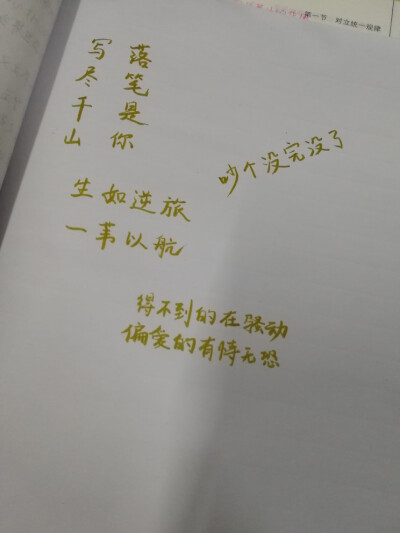 第一节 对立统一规律
写尽千山
落笔是你
吵个没完没了
生如逆旅
一苇以航
得不到的在骚动
偏爱的有恃无恐